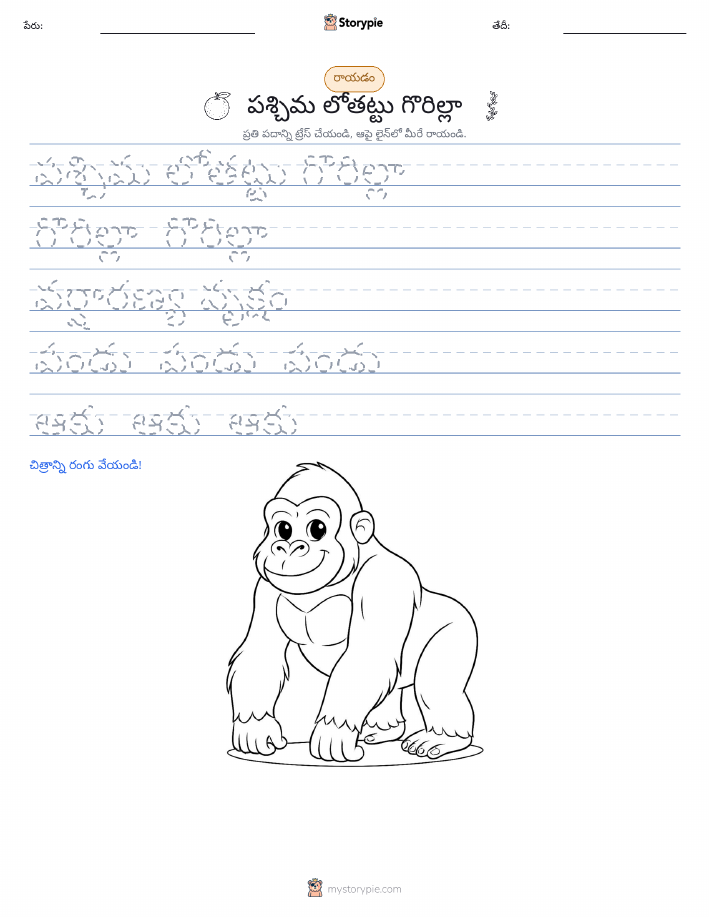 పేరు:
Storypie
తేదీ:
రాయడం
పశ్చిమ లోతట్టు గొరిల్లా
ప్రతి పదాన్ని ట్రేస్ చేయండి, ఆపై లైన్‌లో మీరే రాయండి.
పశ్చిమ లోతట్టు గొరిల్లా
గొరిల్లా గొరిల్లా
వర్షారణ్య వృక్షం
పండు పండు పండు
ఆకు ఆకు ఆకు
చిత్రాన్ని రంగు వేయండి!
mystorypie.com